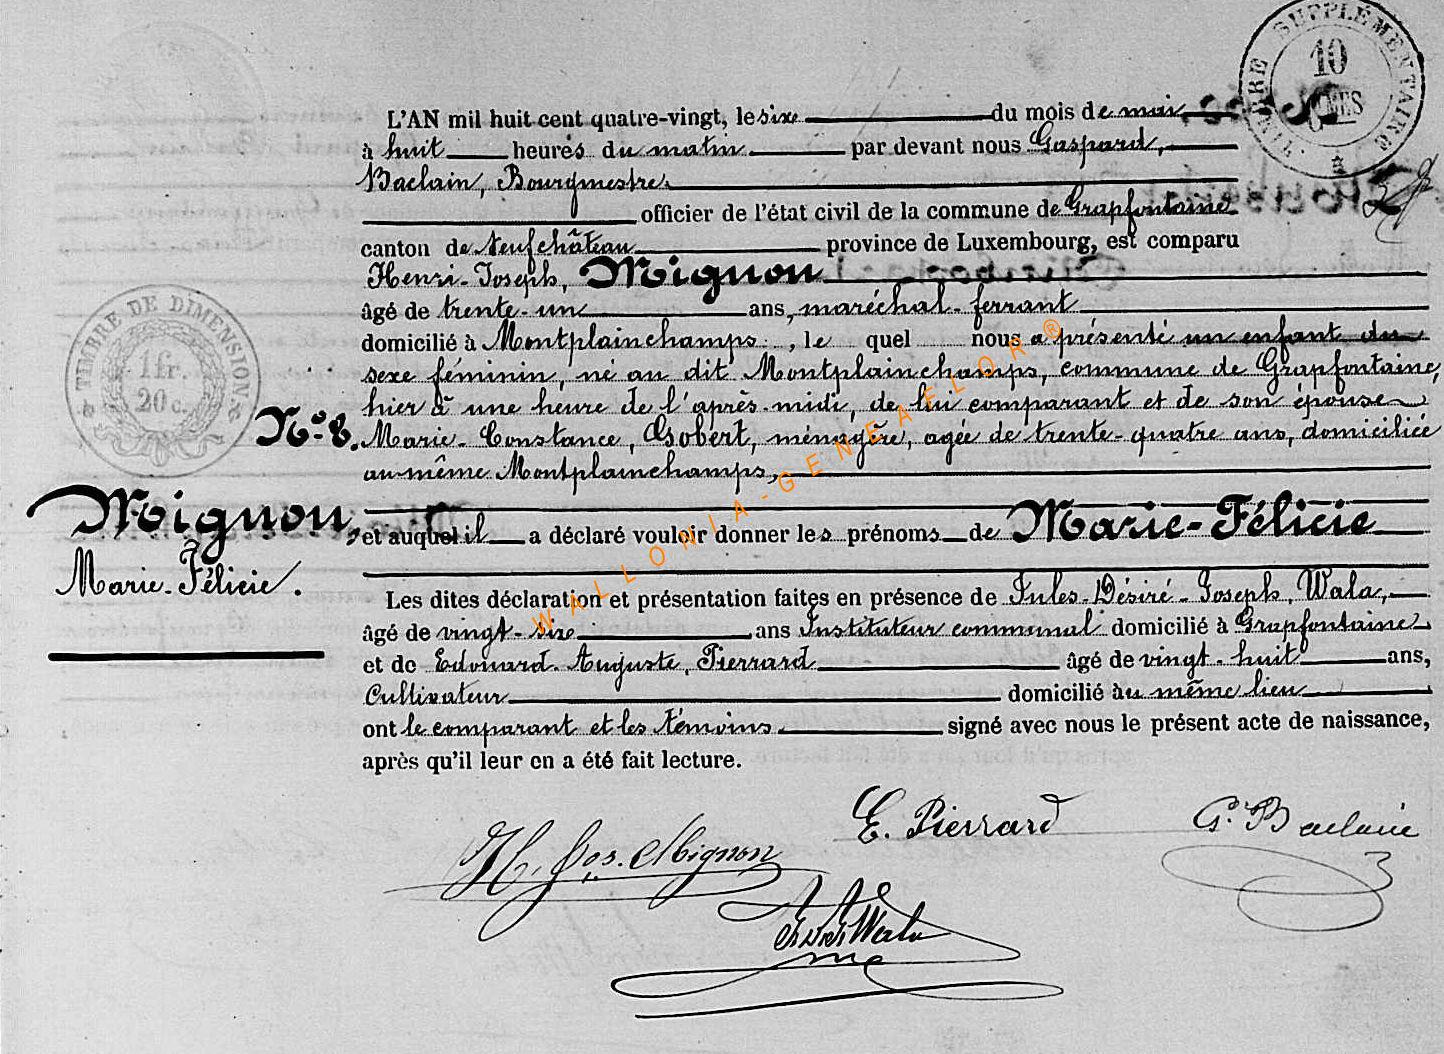 TIMBRE SUPPLÉMENTAIRE
10
CMES
L'AN mil huit cent quatre-vingt, le six du mois de mai,
à huit heures du matin par devant nous Gaspard,
Baclain, Bourgmestre,
officier de l'état civil de la commune de Grapfontaine
canton de Neufchâteau province de Luxembourg, est comparu
Henri-Joseph, Mignon
âgé de trente-un ans, maréchal-ferrant
domicilié à Montplainchamps, le quel nous a présenté un enfant du
sexe féminin, né au dit Montplainchamps, commune de Grapfontaine,
hier à une heure de l'après-midi, de lui comparant et de son épouse
Marie-Constance, Gobert, ménagère, agée de trente-quatre ans, domiciliée
au même Montplainchamps,
TIMBRE DE DIMENSION
1 fr.
20 c.
No. 8.
Mignon,
Marie-Félicie.
et auquel il a déclaré vouloir donner les prénoms de Marie-Félicie
Les dites déclaration et présentation faites en présence de Jules-Désiré-Joseph, Wala,
âgé de vingt-six ans Instituteur communal domicilié à Grapfontaine
et de Edouard-Auguste, Pierrard âgé de vingt-huit ans,
Cultivateur domicilié au même lieu
ont le comparant et les témoins signé avec nous le présent acte de naissance,
après qu'il leur en a été fait lecture.
E. Pierrard
G. Baclain
H. Jos. Mignon
Wala
WALLONIA-GENEAFLOR®